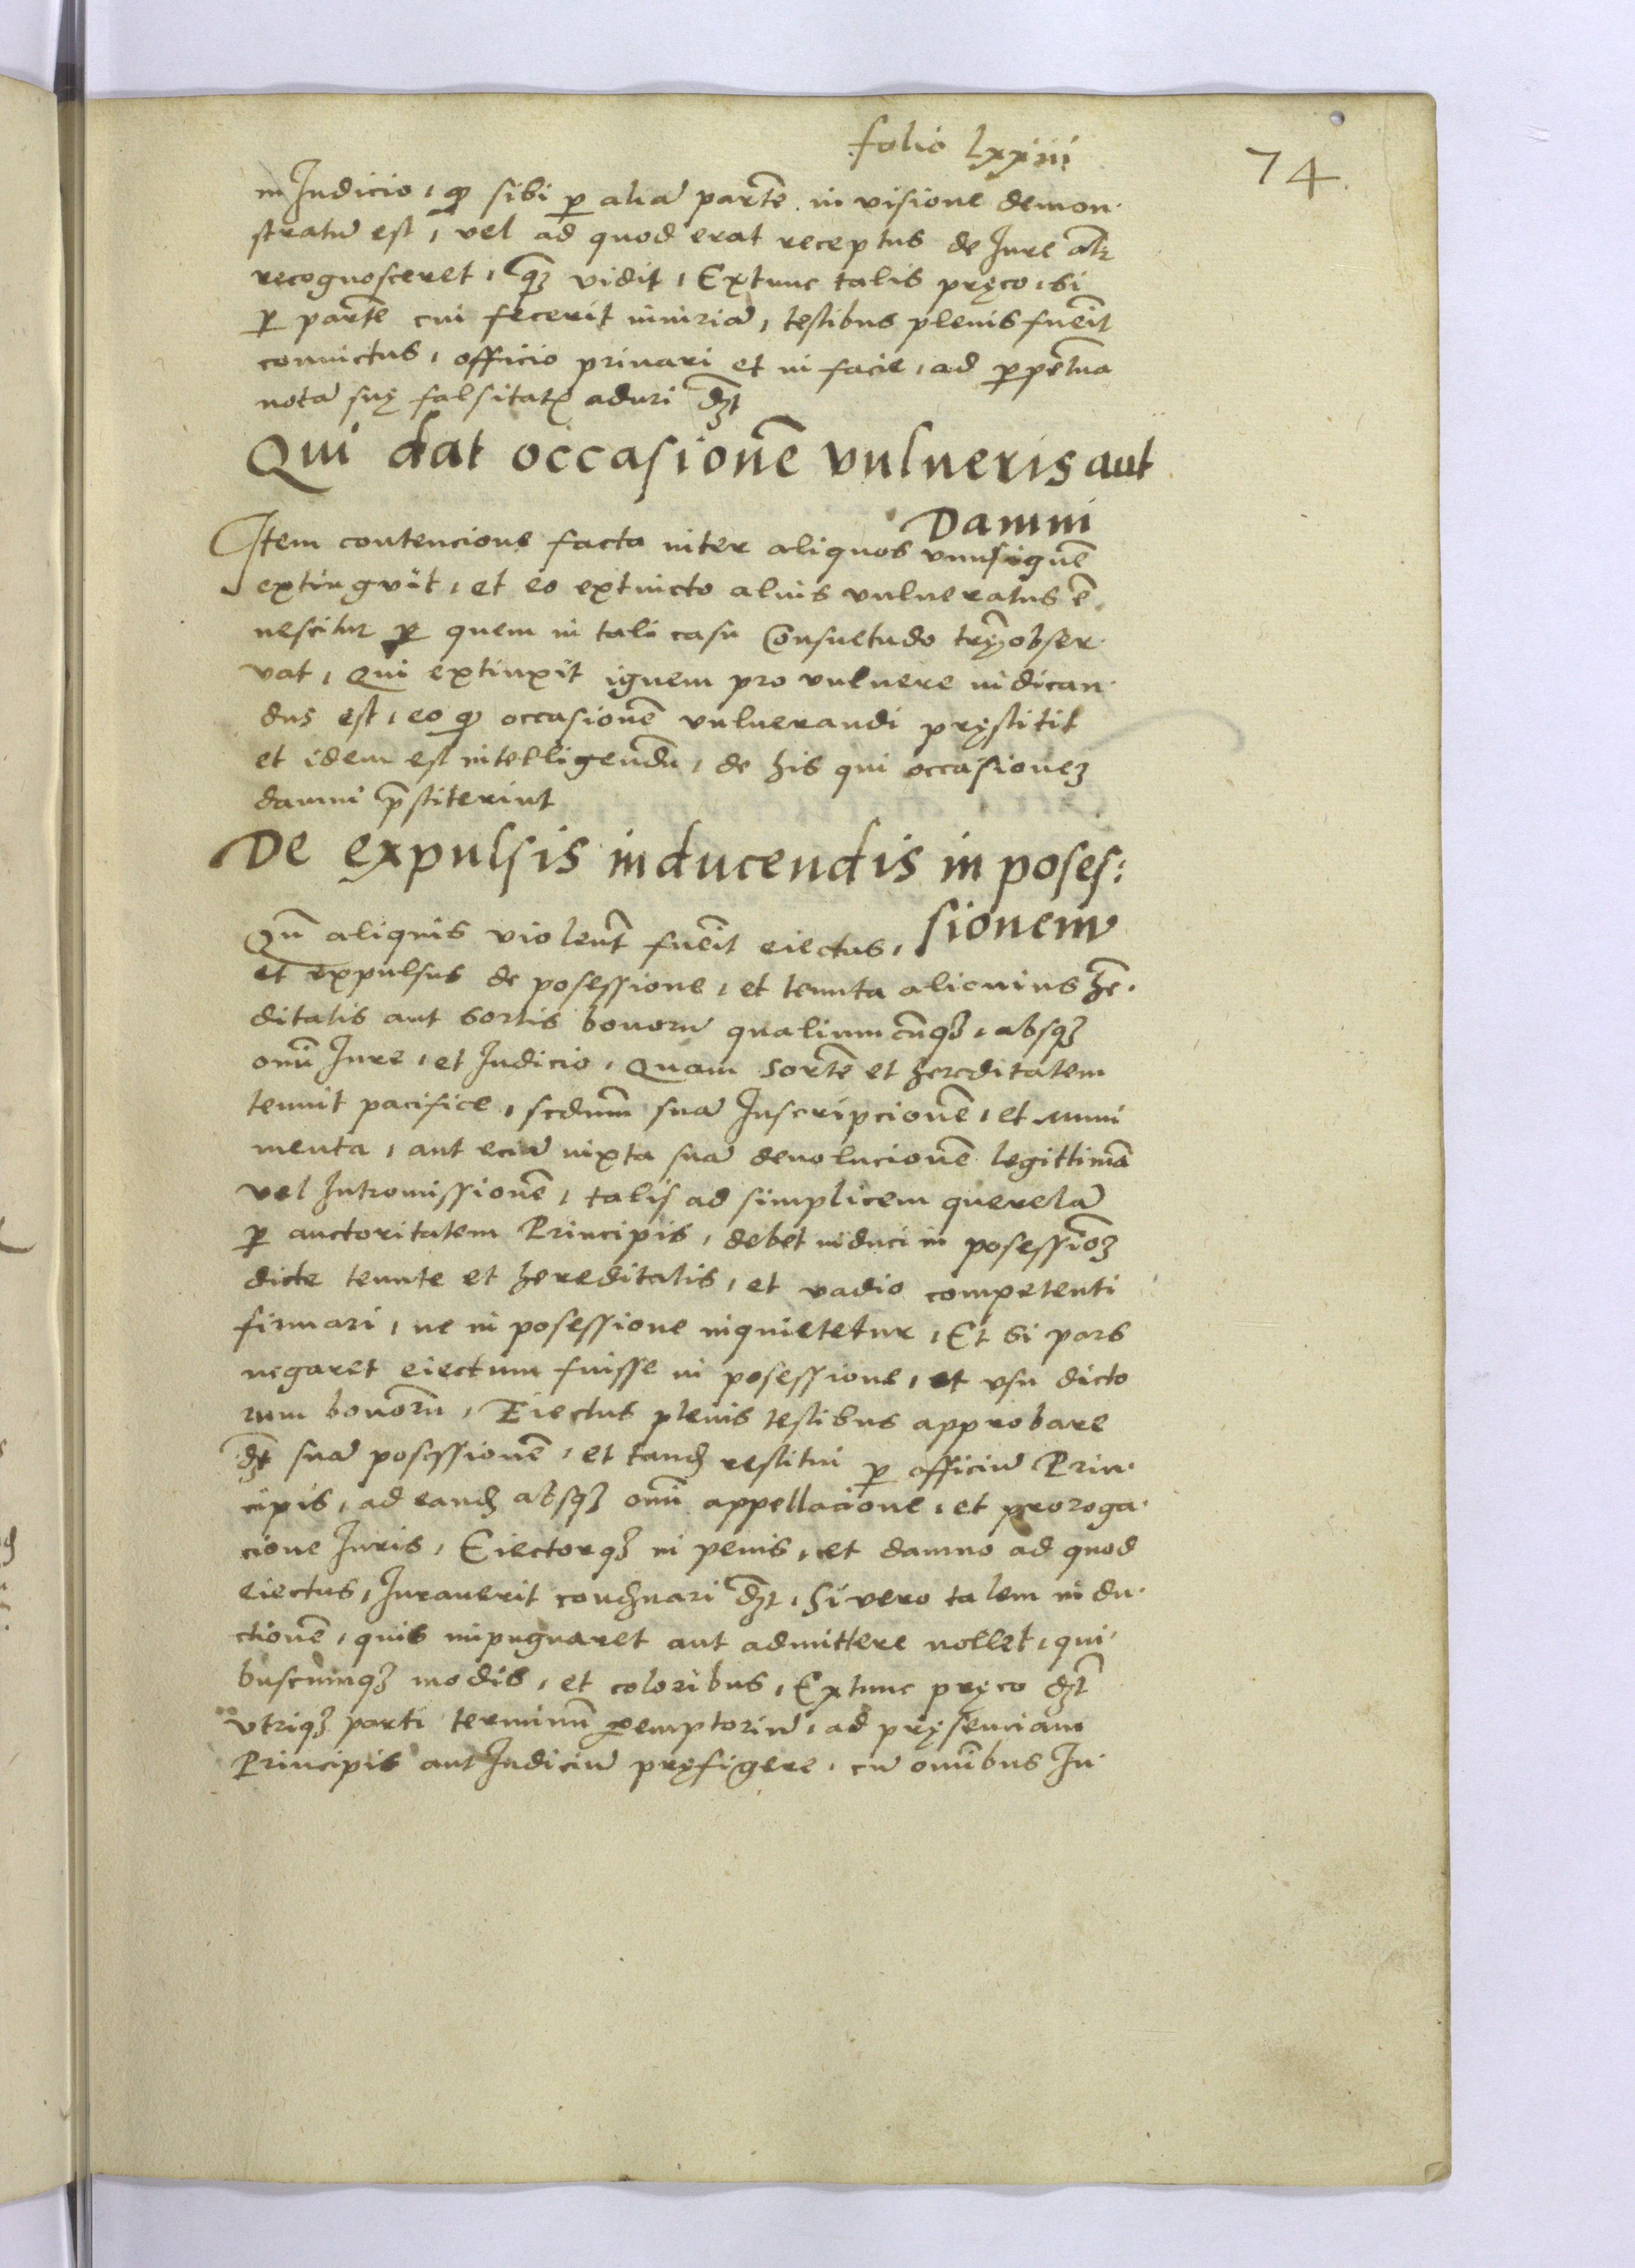 folio lxxiiii
74
in Judicio, ꝙ sibi ꝑ aliā partē in visione demon-
stratū est, vel ad quod erat receptus de Jure alr̄
recognosceret, q̄ȝ vidit, Extunc talis pręco, si
ꝑ partē cui fecerit iniuriā, testibus plenis fuēit
conuictus, officio priuari et in facie, ad ꝑpetuā
notā suę falsitatꝭ aduri dȝt
Qui dat occasionē vulneris aut
Damni
Item contencione facta inter aliquos vnus ignē
extingvit, et eo extincto alius vulneratus ē
nescitur ꝑ quem in tali casu Consuetudo trę obser-
vat, Qui extinxit ignem pro vulnere iudican-
dus est, eo ꝙ occasionē vulnerandi pręstitit
et idem est intelligendū, de his qui occasioneȝ
damni p̄stiterint
De expulsis inducendis in poses:
sionem
Qn̄ aliquis violent̄ fuēit eiectus,
et expulsus de posessione, et tenuta alicuius he-
ditatis aut sortis bonorū qualiumcūqȝ, absqȝ
omī Jure, et Judicio, Quam sortē et hereditatem
tenuit pacifice, scdm̄ suā Inscripcionē, et muni
menta, aut eciā iuxta suā deuolucionē legittimā
vel Intromissionē, talis ad simplicem querelā
ꝑ auctoritatem Principis, debet induci in posessiōȝ
dicte tenute et hereditatis, et vadio competenti
firmari, ne in posessione inquietetur, Et si pars
negaret eiectum fuisse in posessione, et vsu dicto
rum bonorū, Eiectus plenis testibus approbare
dȝt suā posessionē, et tandȝ restitui ꝑ officiū Prin-
cipis, ad eandȝ absqȝ omī appellacione, et proroga-
cione Juris, Eiectorqȝ in penis, et damno ad quod
eiectus, Jurauerit condȝnari dȝt, Si vero talem indu-
ctionē, quis impugnaret aut admittere nollet, qui-
buscumqȝ modis, et coloribus, Extunc pręco dȝt
vtriqȝ parti terminū ꝑemptoriū, ad pręsenciam
Principis aut Judiciū pręfigere, cū omībus In-